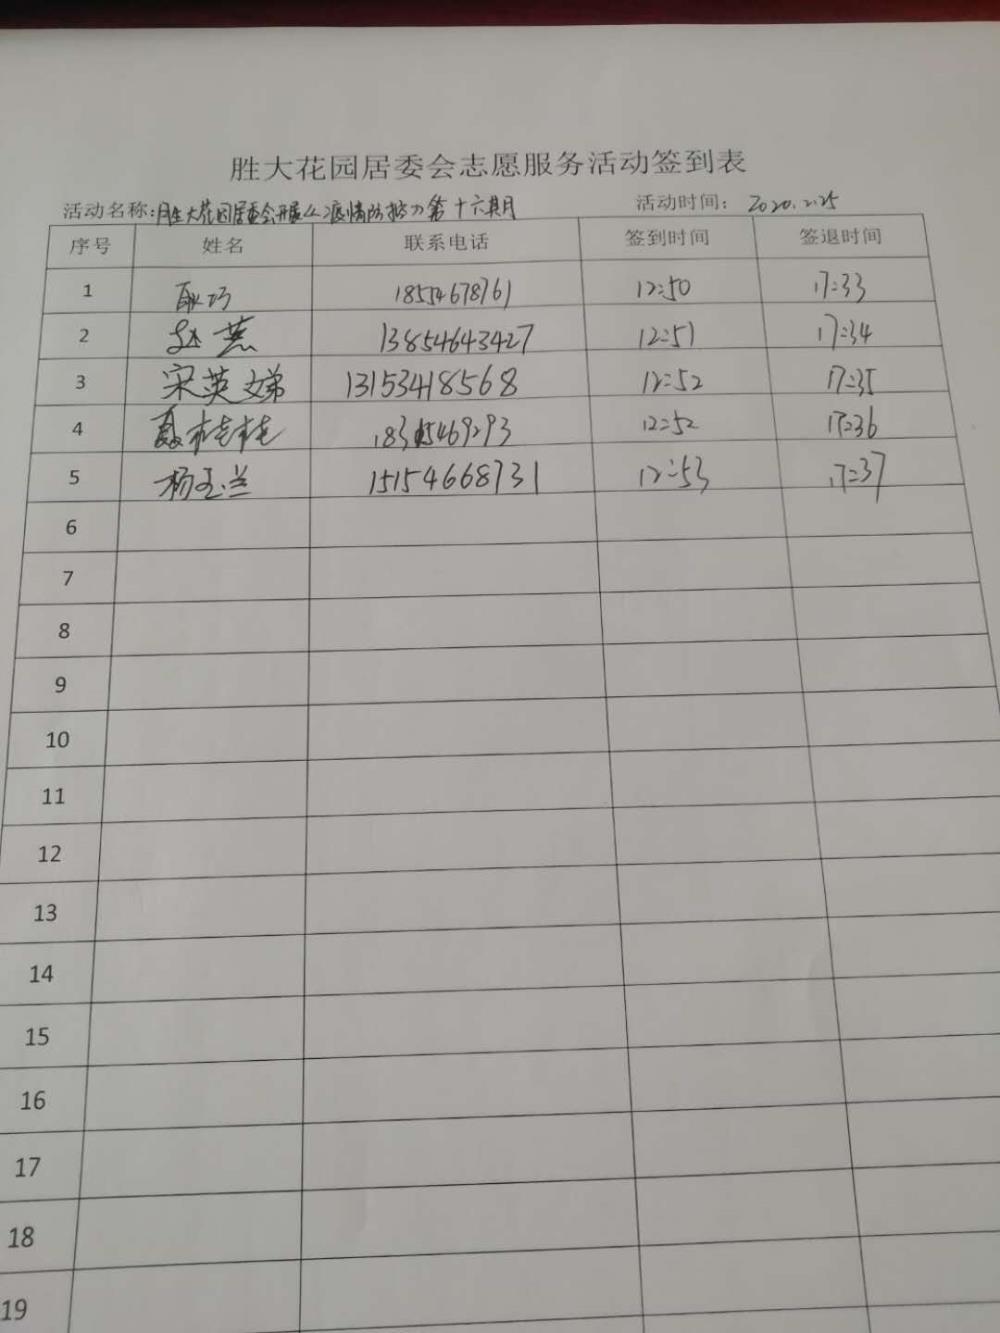 胜大花园居委会志愿服务活动签到表
活动名称:胜大花园居委会开展《疫情防控》第十六期 活动时间: 2020.2.25
序号 姓名 联系电话 签到时间 签退时间
1 耿巧 18554678761 12:50 17:33
2 赵燕 13854643427 12:51 17:34
3 宋英娣 13153418568 12:52 17:35
4 聂桂桂 18315469293 12:52 17:36
5 杨玉兰 15154668731 12:53 17:37
6
7
8
9
10
11
12
13
14
15
16
17
18
19